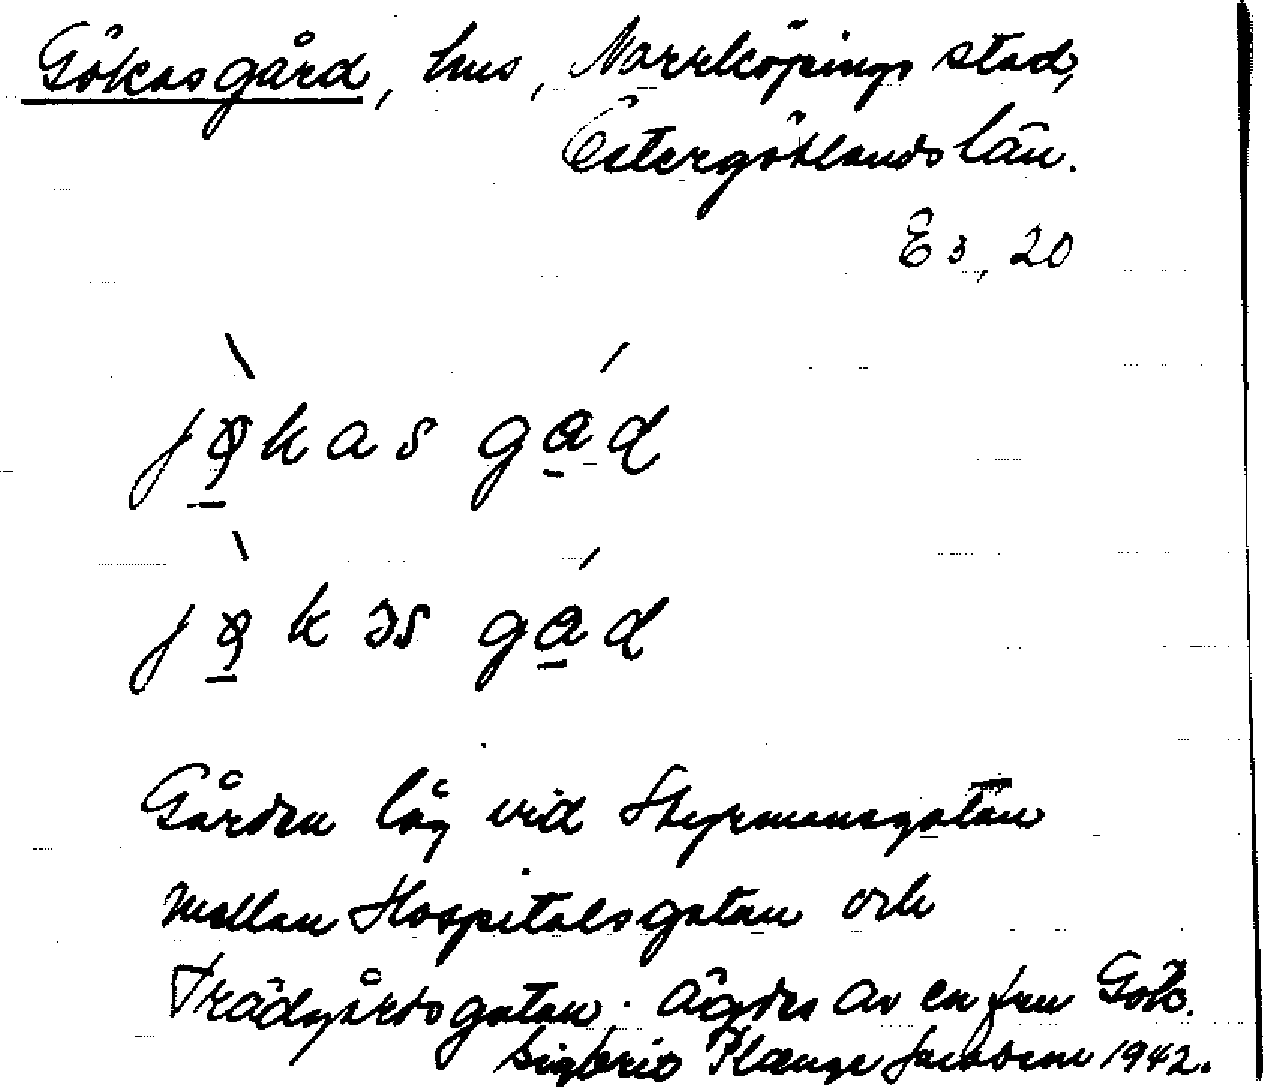 Gökasgård, hus, Norrköpings stad,
Östergötlands län.
E3, 20
jø̱̀kas gá̱d
jø̱̀kəs gá̱d
Gården låg vid Styrmansgatan
mellan Hospitalsgatan och
Trädgårdsgatan. Ägdes av en fru Gök.
Sigbrit Plænge Jacobson 1942.